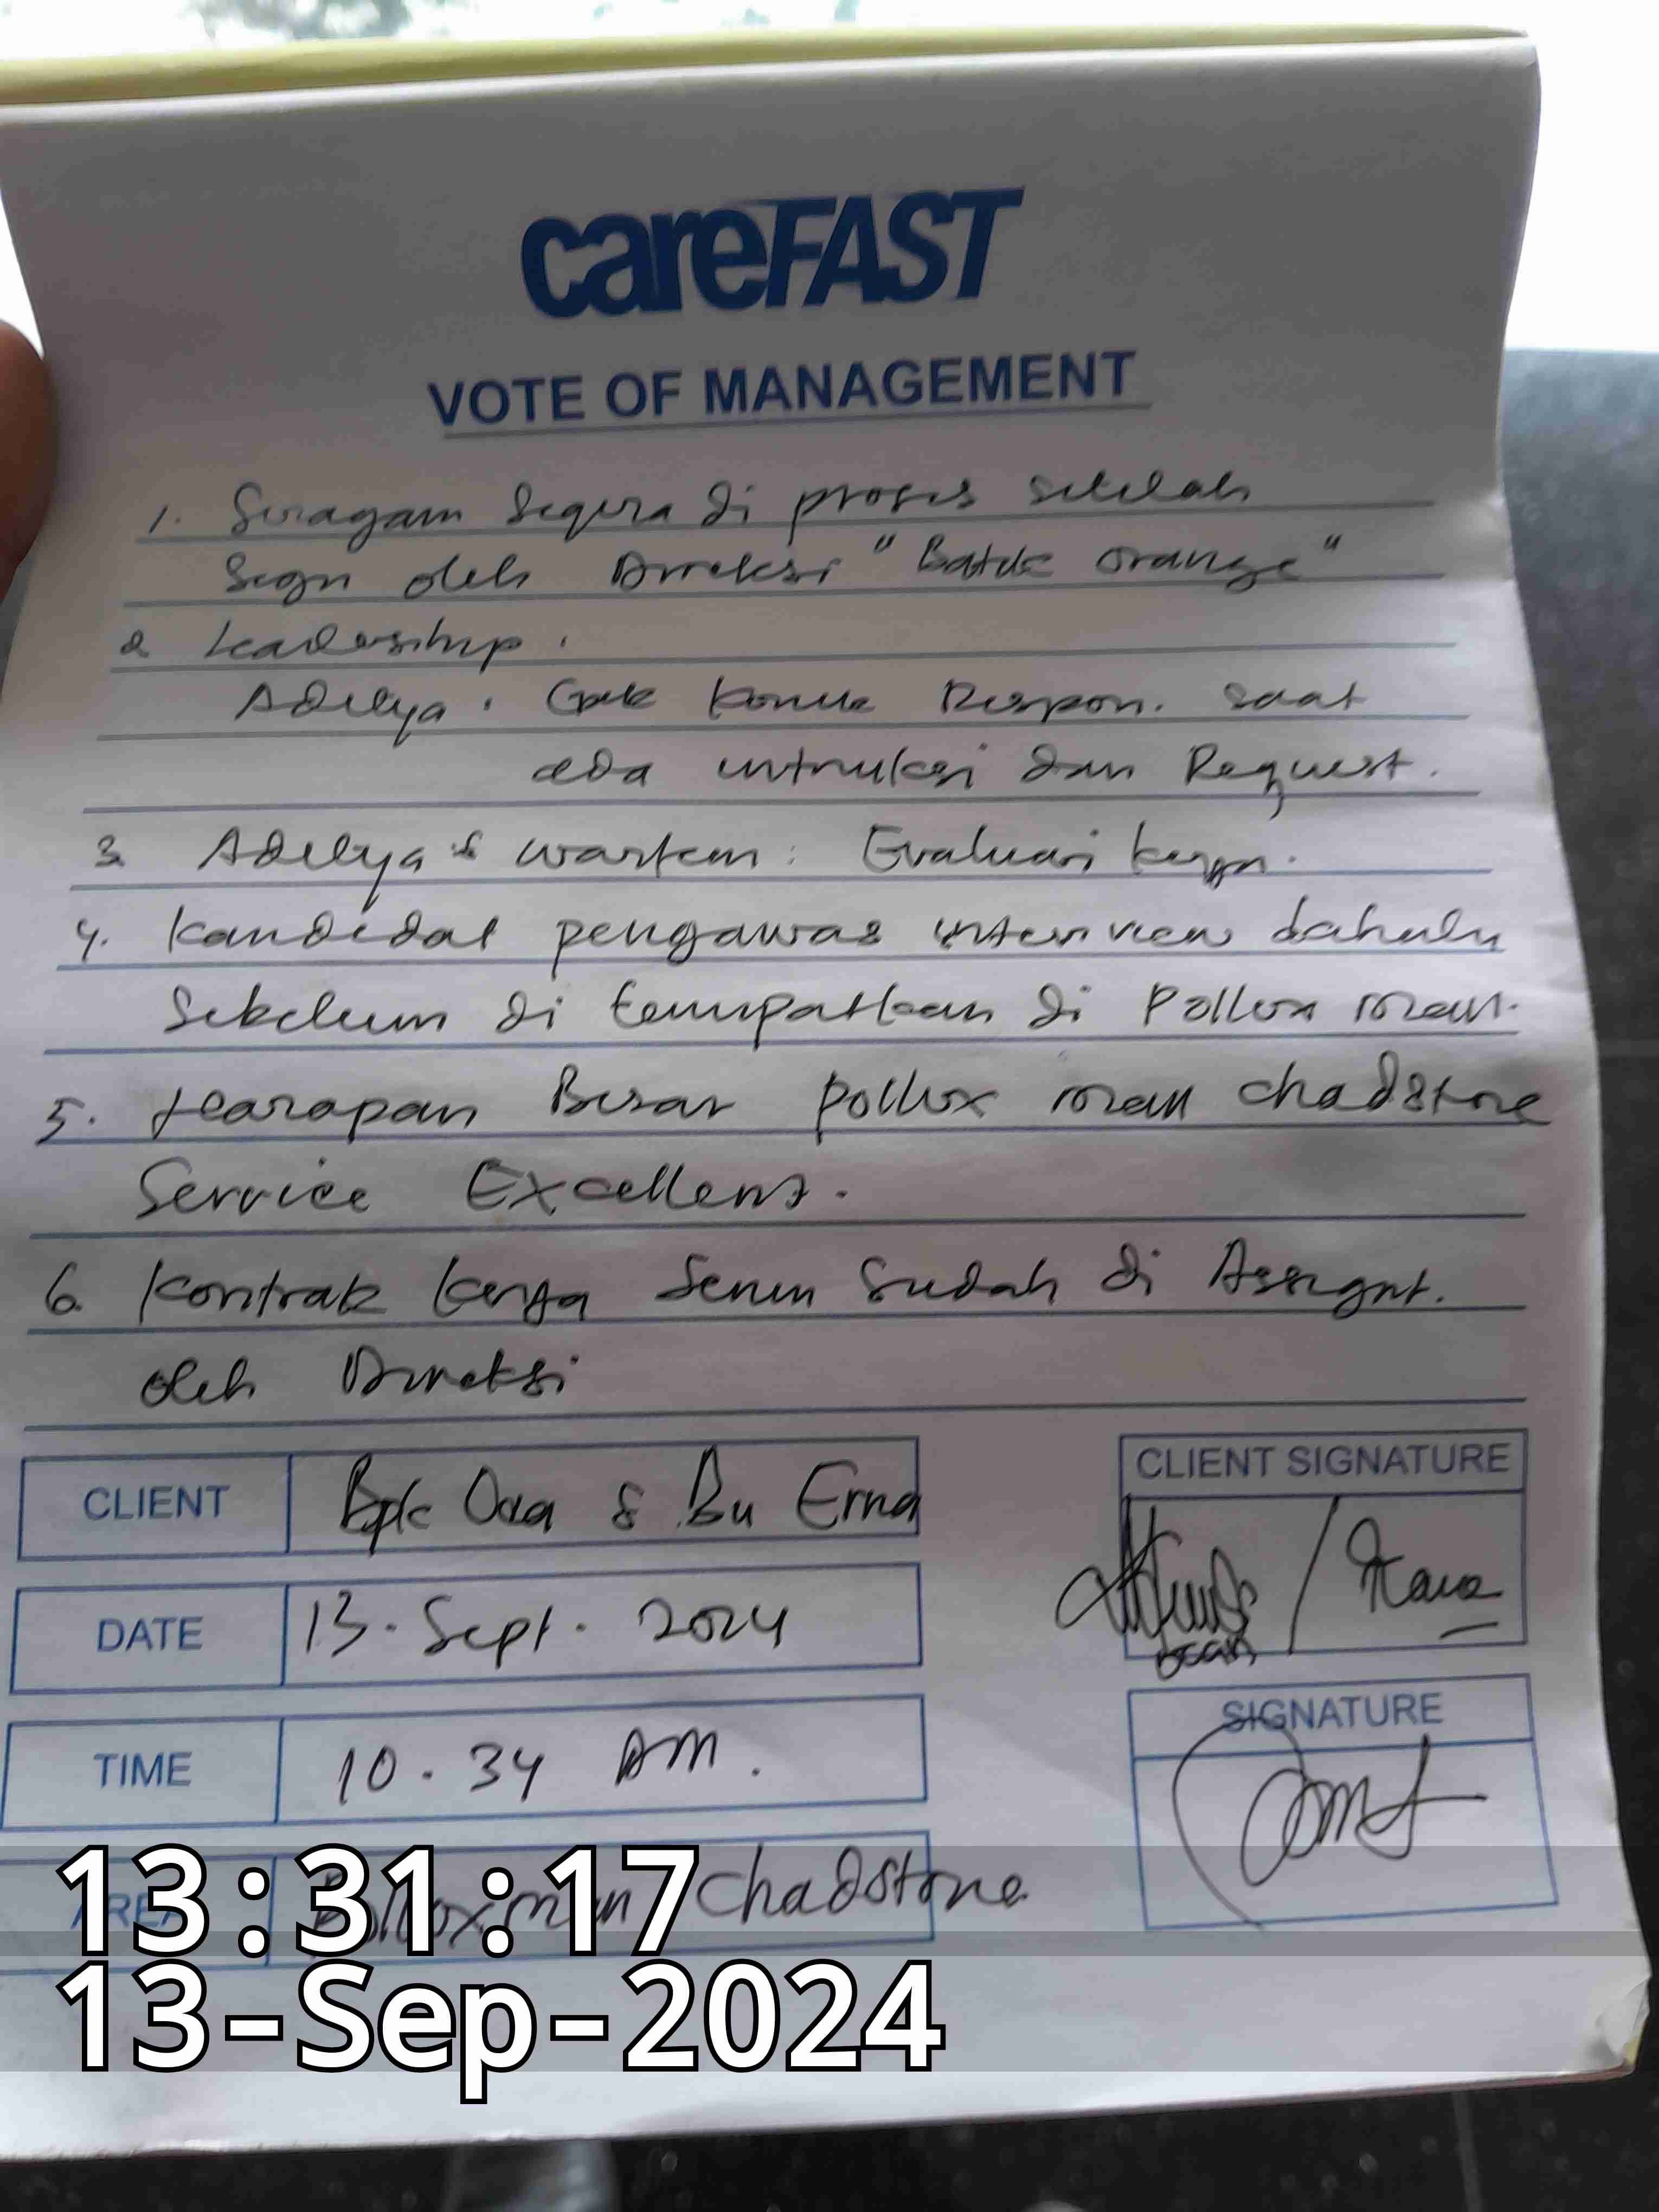 careFAST
VOTE OF MANAGEMENT
1. Seragam Segera di proses setelah
Sign oleh Direksi "Batik orange"
2 Leadership.
Adelya : Gak Respon. saat
ada intruksi dan Request.
3. Adelya & wartem : Evaluasi kerja.
4. Kandidat pengawas interview dahulu
Sebelum di tempatkan di Pollux mall.
5. Harapan Besar Pollux mall chadstone
Service Excellent.
6. Kontrak kerja Senin Sudah di Assignt.
oleh Direksi
CLIENT Bpk Oca & Bu Erna
CLIENT SIGNATURE
DATE 13. Sept. 2024
SIGNATURE
TIME 10.34 AM.
AREA Pollux mall chadstone
13:31:17
13-Sep-2024